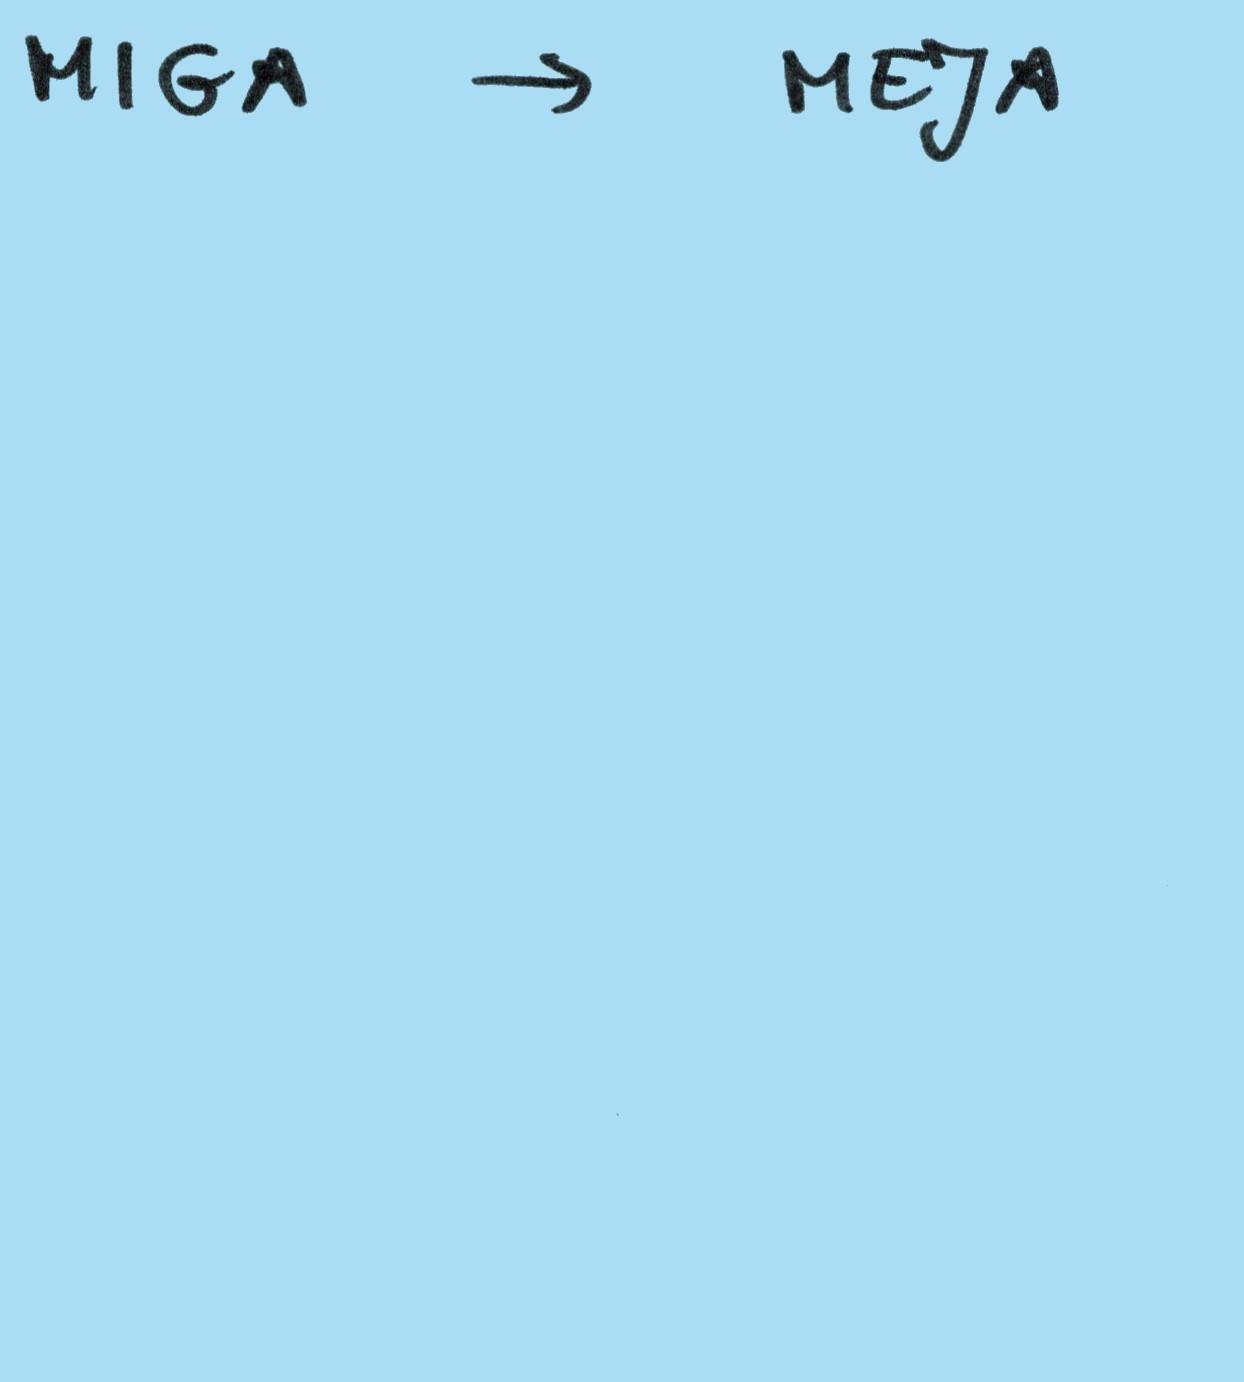 MIGA → MEJA